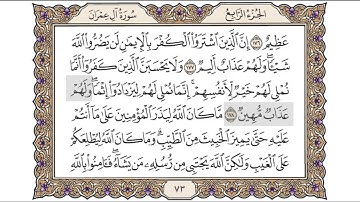 الجزء الرابع
سورة آل عمران
عظيم ۝١٧٦ إن الذين اشتروا الكفر بالإيمن لن يضروا الله
شيئا ولهم عذاب أليم ۝١٧٧ ولا يحسبن الذين كفروا أنما
نملي لهم خير لأنفسهم إنما نملي لهم ليزدادوا إثما ولهم
عذاب مهين ۝١٧٨ ما كان الله ليذر المؤمنين على ما أنتم
عليه حتى يميز الخبيث من الطيب وما كان الله ليطلعكم
على الغيب ولكن الله يجتبي من رسله من يشاء فءامنوا بالله
٧٣